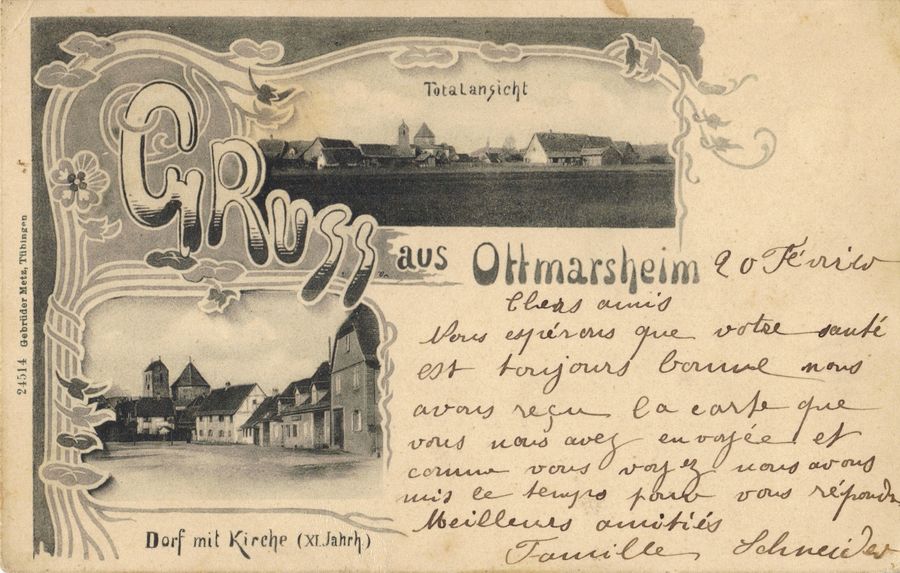 Totalansicht
GRUSS
aus Ottmarsheim
20 Février
Chers amis
Nous espérons que votre santé
est toujours bonne nous
avons reçu la carte que
vous nous avez envoyée et
comme vous voyez nous avons
mis le temps pour vous répondre
Meilleures amitiés
Famille Schneider
Dorf mit Kirche (XI. Jahrh.)
24514 Gebrüder Metz, Tübingen